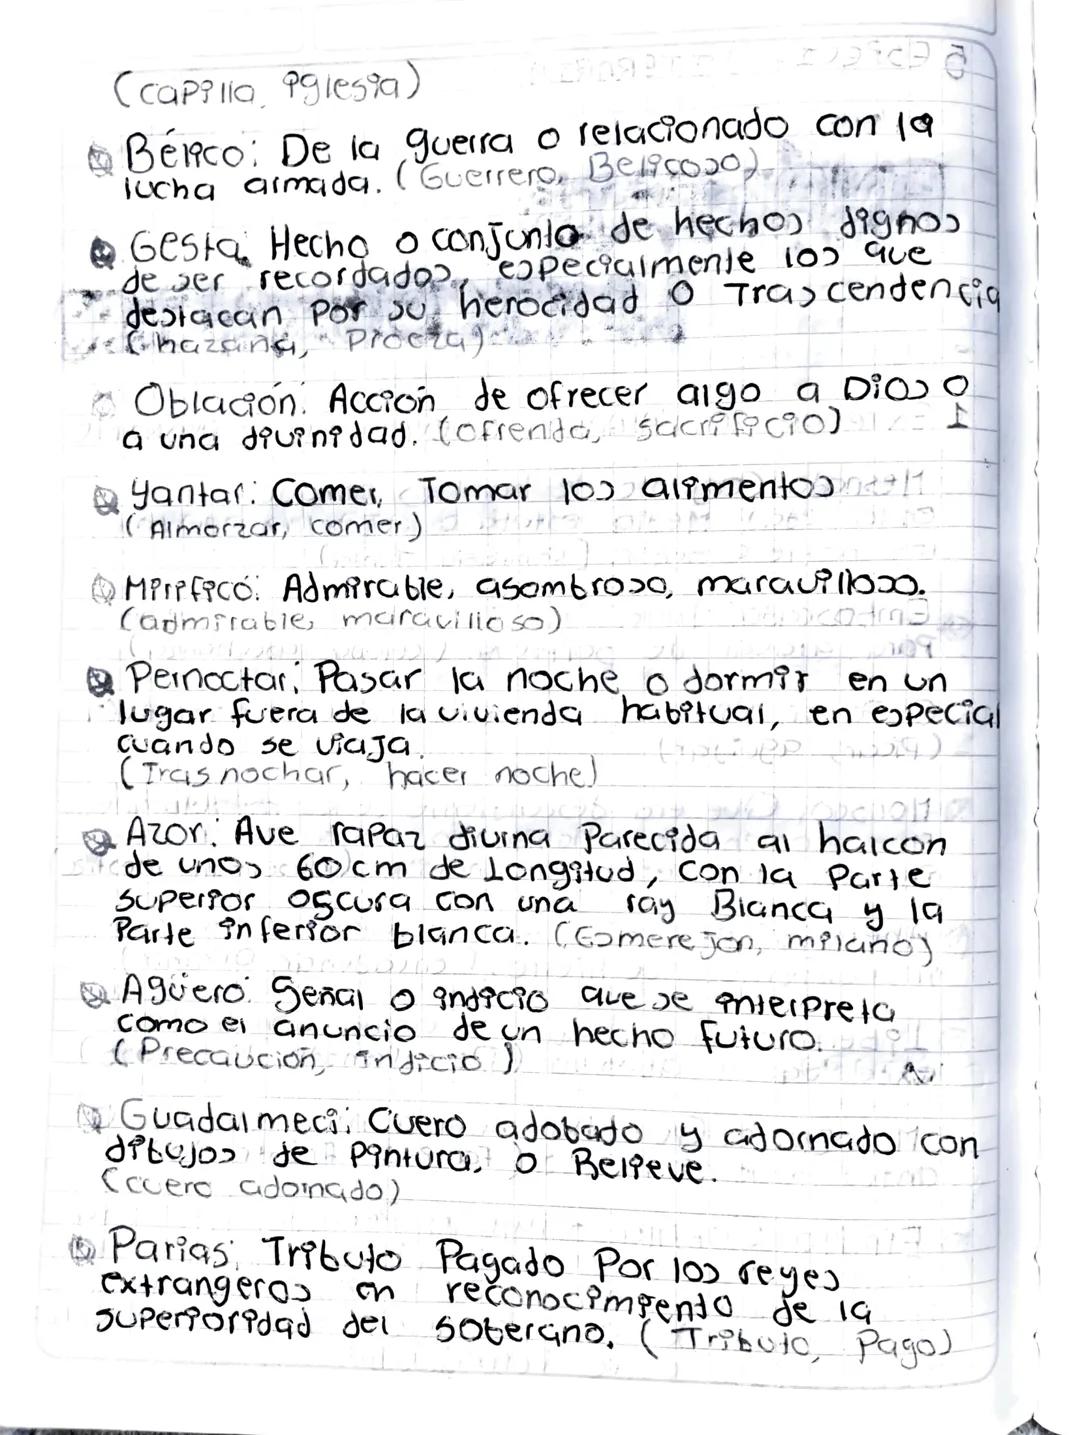 (capilla, iglesia)
Bélico: De la guerra o relacionado con la
lucha armada. (Guerrero, Belicoso)
Gesta: Hecho o conjunto de hechos dignos
de ser recordados, especialmente los que
destacan por su herocidad o Trascendencia
(hazaña, Proeza)
Oblación: Acción de ofrecer algo a Dios o
a una divinidad. (ofrenda, sacrificio)
Yantar: Comer, Tomar los alimentos
(Almorzar, comer)
Mirífico: Admirable, asombroso, maravilloso.
(admirable, maravilloso)
Pernoctar: Pasar la noche o dormir en un
lugar fuera de la vivienda habitual, en especial
cuando se viaja.
(Trasnochar, hacer noche)
Azor: Ave rapaz diurna Parecida al halcon
de unos 60 cm de Longitud, con la Parte
superior oscura con una ray Blanca y la
Parte inferior blanca. (Esmerejon, milano)
Agüero: Señal o indicio que se interpreta
como el anuncio de un hecho futuro.
(Precaución, indicio)
Guadalmeci: Cuero adobado y adornado con
dibujos de pintura, o Relieve.
(cuero adornado)
Parias: Tributo Pagado Por los reyes
extrangeros en reconocimiento de la
superioridad del soberano. (Tributo, Pago)